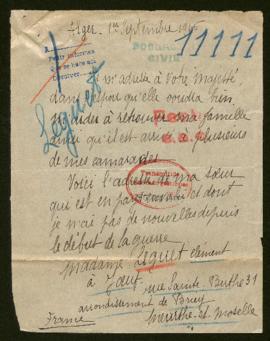 Alger, 1er Septembre 19
11111
Leguet
Je m'adresse à Votre Majesté
dans l'espoir qu'elle voudra bien
m'aider à retrouver ma famille
ainsi qu'il est arrivé à plusieurs
de mes camarades.
Voici l'adresse de ma sœur
qui est en pays envahi et dont
je n'ai pas de nouvelles depuis
le début de la guerre
Madame Leguet Clément
à Jœuf, rue Sainte Berthe 31
arrondissement de Briey
France Meurthe et Moselle